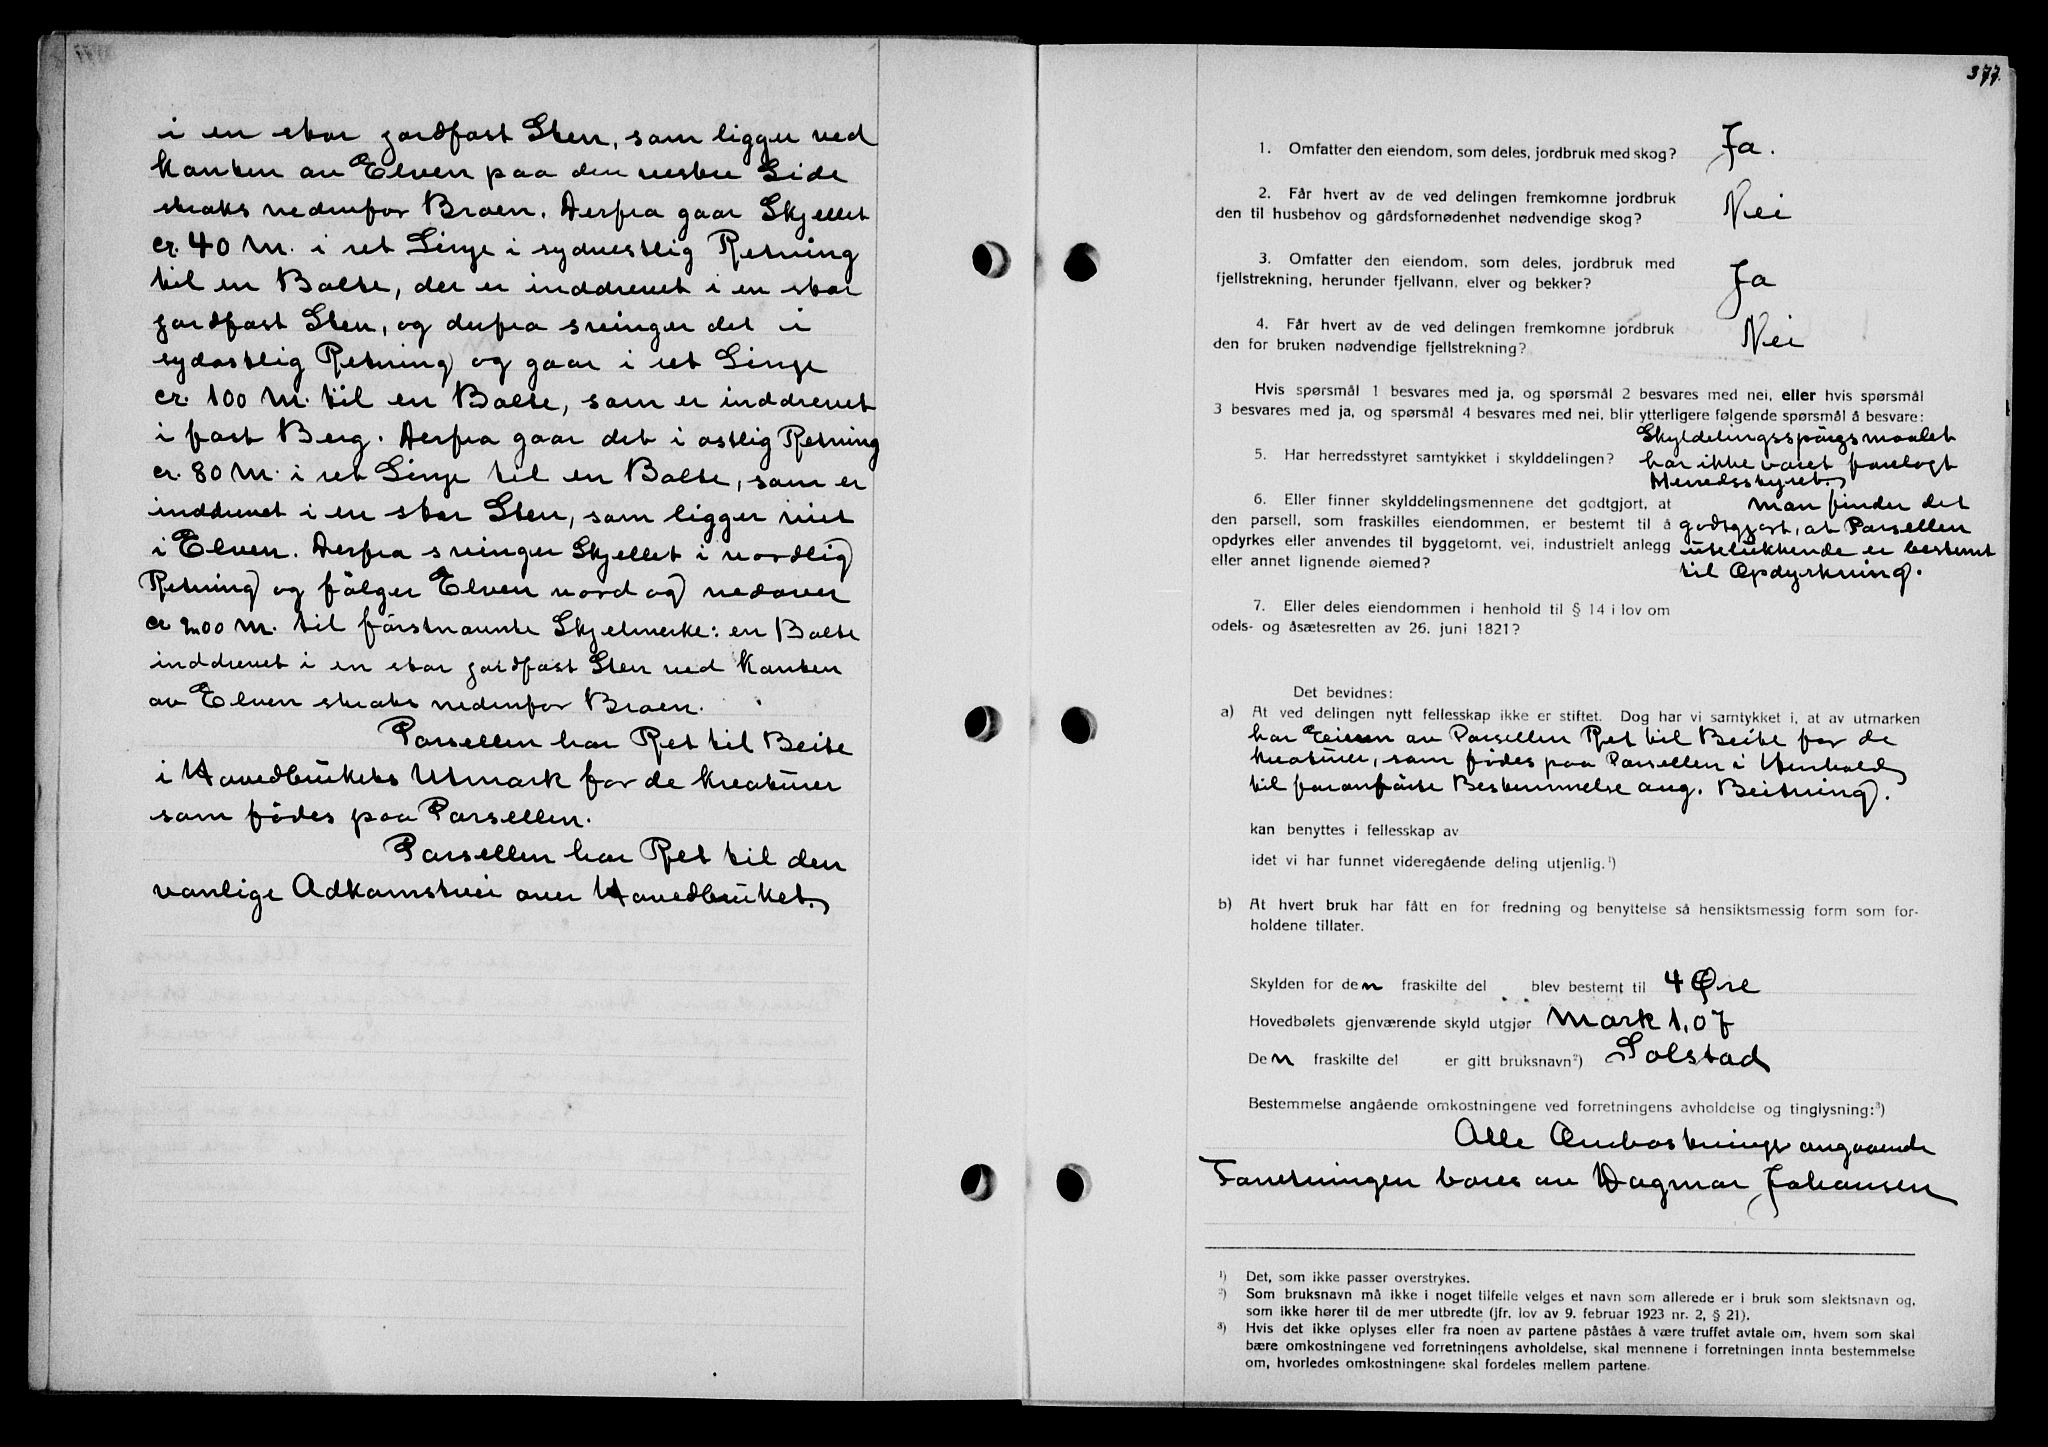 i en stor jordfast Sten, som ligger ved
Kanten av Elven paa den vestre Side
straks nedenfor Broen. Derfra gaar Skjellet
cr. 40 M. i ret Linje i sydvestlig Retning
til en Bolte, der er inddrevet i en stor
jordfast Sten, og derfra svinger det i
sydøstlig Retning og gaar i ret Linje
cr. 100 M. til en Bolte, som er inddrevet
i fast Berg. Derfra gaar det i østlig Retning
cr. 80 M. i ret Linje til en Bolte, som er
inddrevet i en stor Sten, som ligger
i Elven. Derfra svinger Skjellet i nordlig
Retning og følger Elven nord og nedover
cr 200 M. til førstnævnte Skjelmerke: en Bolte
inddrevet i en stor jordfast Sten ved Kanten
av Elven straks nedenfor Broen.
Parsellen har Ret til Beite
i Hovedbrukets Utmark for de Kreaturer
som fødes paa Parsellen.
Parsellen har Ret til den
vanlige Adkomstvei over Hovedbruket.
377.
1. Omfatter den eiendom, som deles, jordbruk med skog? Ja.
2. Får hvert av de ved delingen fremkomne jordbruk
den til husbehov og gårdsfornødenhet nødvendige skog? Nei
3. Omfatter den eiendom, som deles, jordbruk med
fjellstrekning, herunder fjellvann, elver og bekker? Ja
4. Får hvert av de ved delingen fremkomne jordbruk
den for bruken nødvendige fjellstrekning? Nei
Hvis spørsmål 1 besvares med ja, og spørsmål 2 besvares med nei, eller hvis spørsmål
3 besvares med ja, og spørsmål 4 besvares med nei, blir ytterligere følgende spørsmål å besvare:
5. Har herredsstyret samtykket i skylddelingen? Skyldelingsspørgsmaalet
har ikke været forelagt
Herredsstyret.
6. Eller finner skylddelingsmennene det godtgjort, at man finder det
den parsell, som fraskilles eiendommen, er bestemt til å godtgjort, at Parsellen
opdyrkes eller anvendes til byggetomt, vei, industrielt anlegg utelukkende er bestemt
eller annet lignende øiemed? til Opdyrkning.
7. Eller deles eiendommen i henhold til § 14 i lov om
odels- og åsætesretten av 26. juni 1821?
Det bevidnes:
a) At ved delingen nytt fellesskap ikke er stiftet. Dog har vi samtykket i, at av utmarken
har Eieren av Parsellen Ret til Beite for de
Kreaturer, som fødes paa Parsellen i Henhold
til foranførte Bestemmelse ang. Beitning.
kan benyttes i fellesskap av
idet vi har funnet videregående deling utjenlig.¹)
b) At hvert bruk har fått en for fredning og benyttelse så hensiktsmessig form som for-
holdene tillater.
Skylden for den fraskilte del blev bestemt til 4 Øre
Hovedbølets gjenværende skyld utgjør Mark 1,07
Den fraskilte del er gitt bruksnavn²) Solstad
Bestemmelse angående omkostningene ved forretningens avholdelse og tinglysning:³)
Alle angaaende
Forretningen bæres av Dagmar Johansen
¹) Det, som ikke passer overstrykes.
²) Som bruksnavn må ikke i noget tilfelle velges et navn som allerede er i bruk som slektsnavn og,
som ikke hører til de mer utbredte (jfr. lov av 9. februar 1923 nr. 2, § 21).
³) Hvis det ikke oplyses eller fra noen av partene påståes å være truffet avtale om, hvem som skal
bære omkostningene ved forretningens avholdelse, skal mennene i forretningen innta bestemmelse
om, hvorledes omkostningene skal fordeles mellem partene.